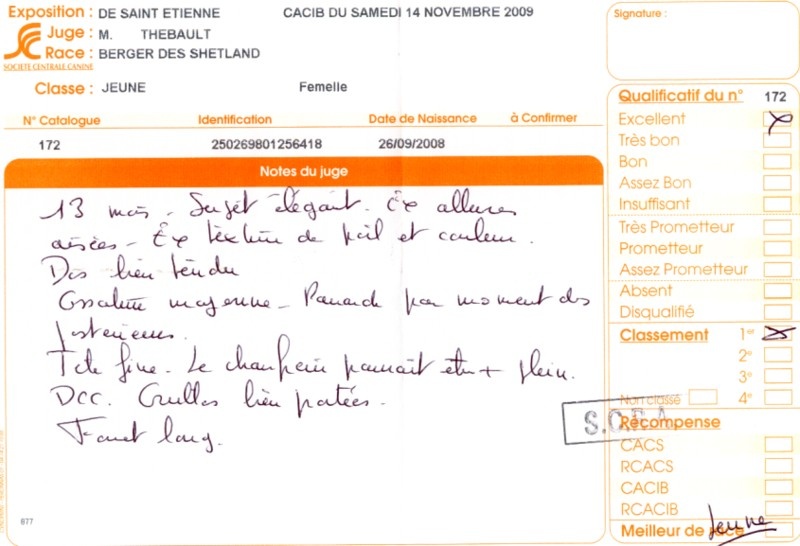 Exposition : DE SAINT ETIENNE CACIB DU SAMEDI 14 NOVEMBRE 2009
Juge : M. THEBAULT
Race : BERGER DES SHETLAND
SOCIÉTÉ CENTRALE CANINE
Classe : JEUNE Femelle
N° Catalogue Identification Date de Naissance à Confirmer
172 250269801256418 26/09/2008
Notes du juge
13 mois - Sujet élégant. Ex allures
aisées - Ex texture de poil et couleur.
Dos bien tendu
Ossature moyenne - Panarde par moment des
posterieurs.
Tete fine. Le chanfrein pourrait etre + plein.
DCC. Oreilles bien portées.
Fouet long.
877
Signature :
Qualificatif du n° 172
Excellent
Très bon
Bon
Assez Bon
Insuffisant
Très Prometteur
Prometteur
Assez Prometteur
Absent
Disqualifié
Classement 1er
2e
3e
Non classé 4e
Récompense
CACS
RCACS
CACIB
RCACIB
Meilleur de race Jeune